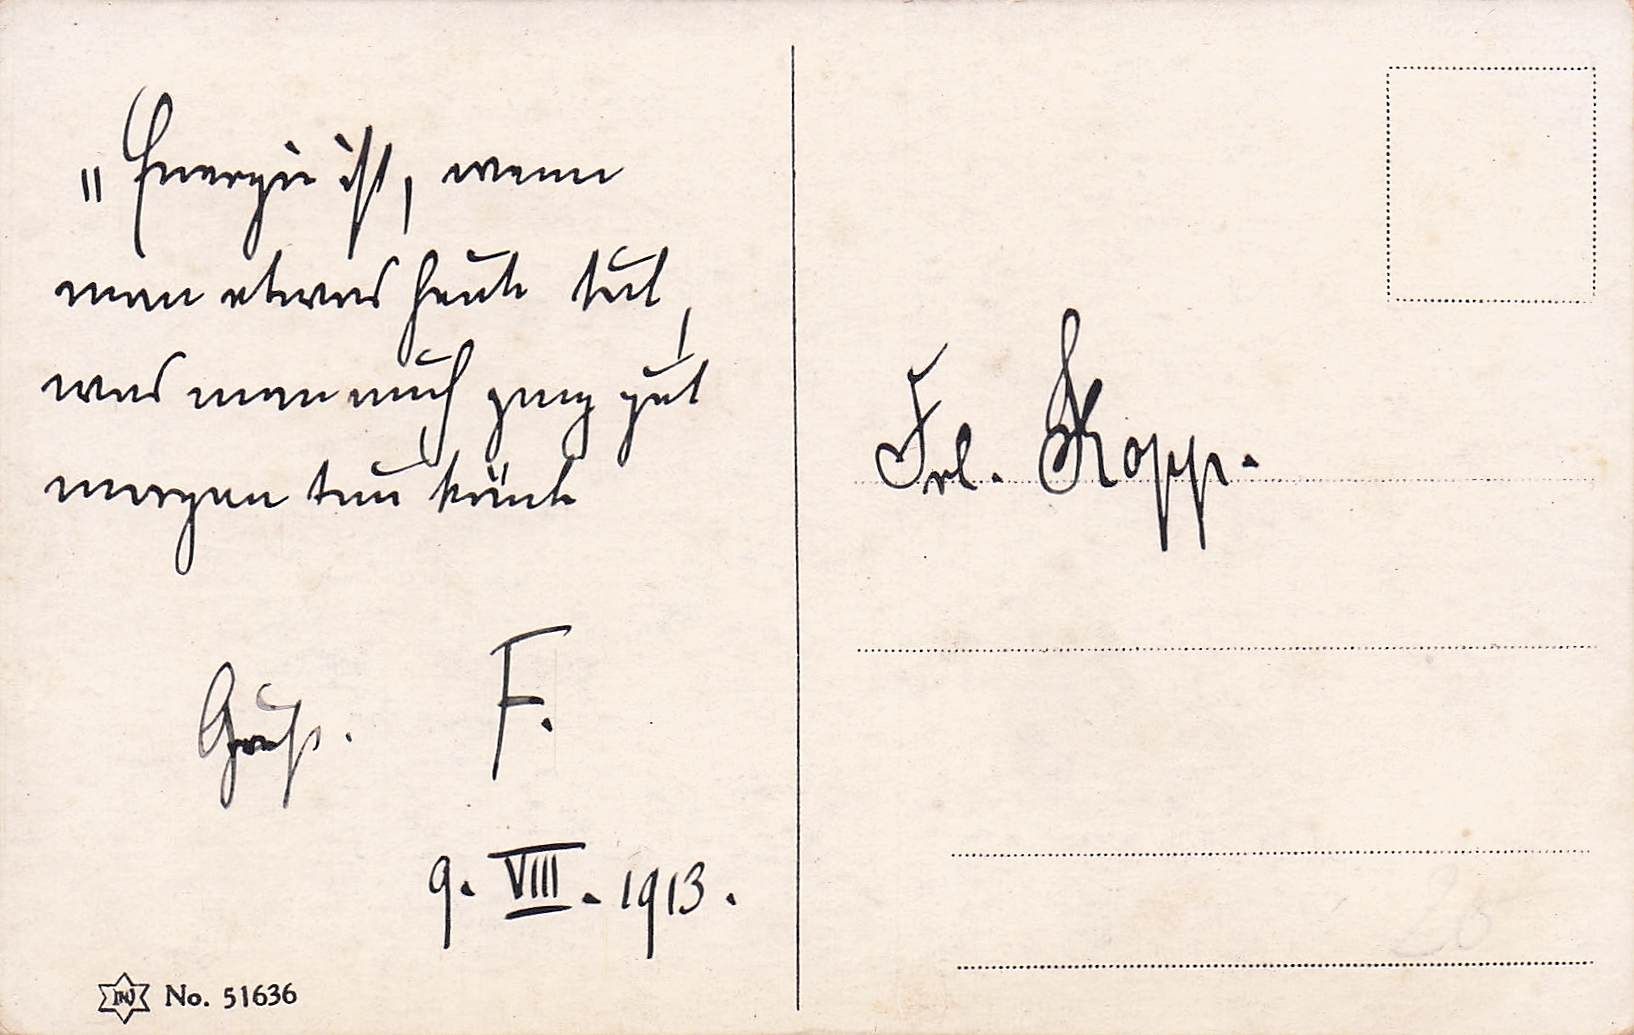 „Energie ist, wenn
man etwas heute tut,
was man auch ganz gut
morgen tun könnte
Gruß. F.
9. VIII. 1913.
No. 51636
Frl. Kopp.